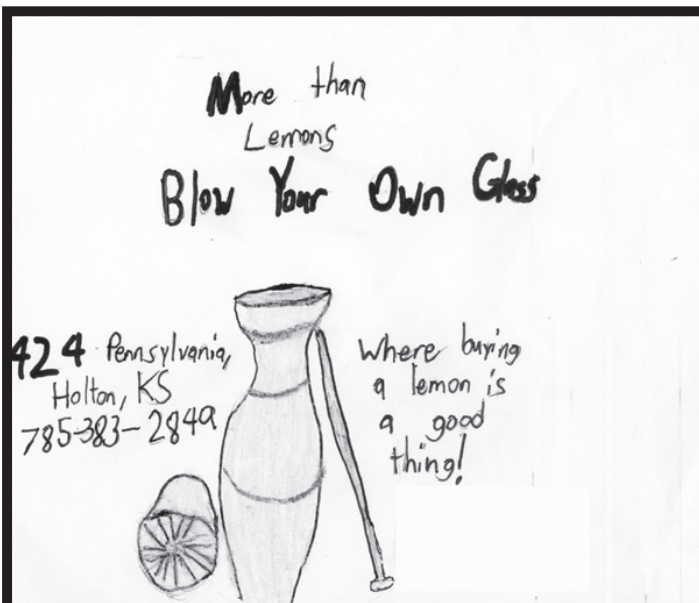 More than
Lemons
Blow Your Own Glass
424 Pennsylvania,
Holton, KS
785-383-2849
Where buying
a lemon is
a good
thing!